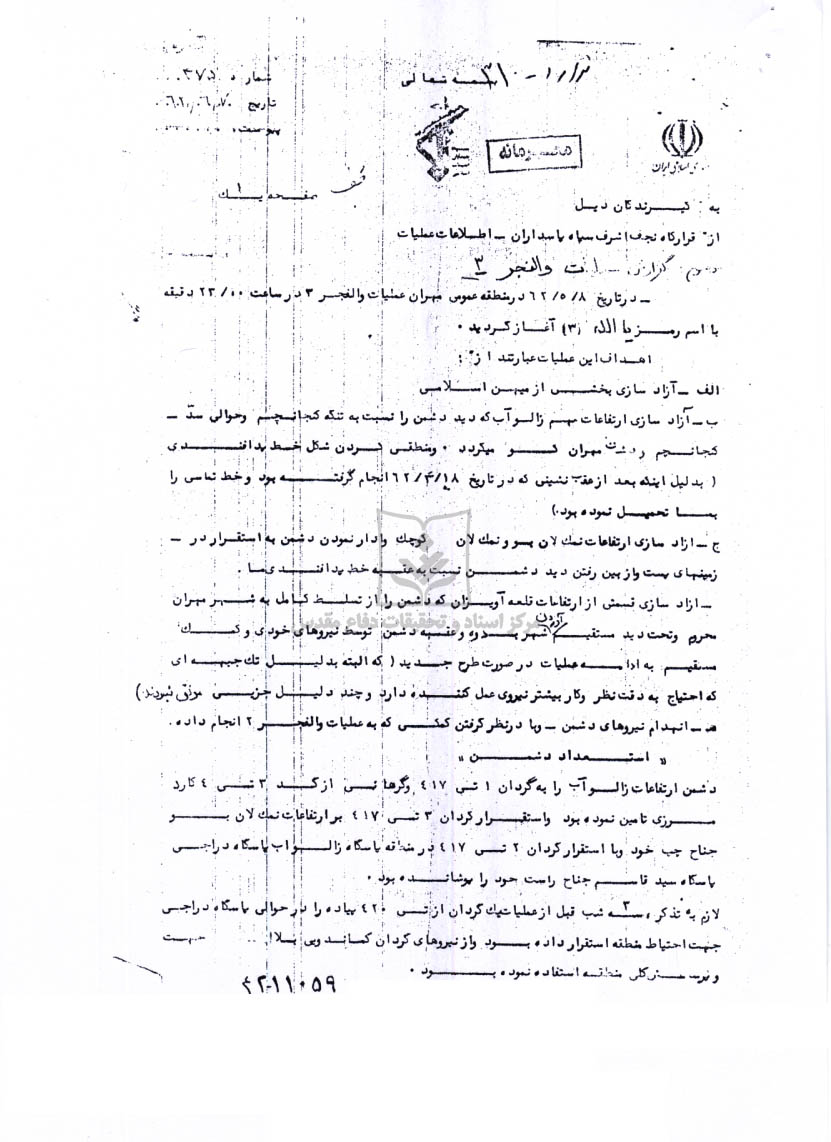 بسمه تعالی
شماره
تاریخ
پیوست
محرمانه
جمهوری اسلامی ایران
صفحه یک
به : گیرندگان ذیل
از : قرارگاه نجف اشرف سپاه پاسداران ـ اطلاعات عملیات
گزارش والفجر ۳
ـ در تاریخ ٦٢/٥/٨ در منطقه عمومی مهران عملیات والفجر ٣ در ساعت ٢٣/٠٠ دقیقه
با اسم رمز یا الله (٣) آغاز گردید ٠
اهداف این عملیات عبارتند از :
الف ـ آزاد سازی بخشی از میهن اسلامی
ب ـ آزاد سازی ارتفاعات مهم زالو آب که دید دشمن را نسبت به تنگه کنجانچم وحوالی سد ـ
کنجانچم مهران میگردد ٠ ومنطقی کردن شکل خط پدافندی
( بدلیل اینکه بعد از عقب نشینی که در تاریخ ٦٢/٤/١٨ انجام گرفته بود وخط تماسی را
بما تحمیل نموده بود٠)
ج ـ ازاد سازی ارتفاعات نمک لان بو و نمک لان کوچک وادار نمودن دشمن به استقرار در ـ
زمینهای پست واز بین رفتن دید دشمن نسبت به عقبه خط پدافندی ما ٠
ـ ازاد سازی قسمتی از ارتفاعات قلعه آویزان که دشمن را از تسلط کامل به شهر مهران
محروم وتحت دید مستقیم شهر بدره وعقبه دشمن توسط نیروهای خودی و کمک
مستقیم به ادامه عملیات در صورت طرح جدید ( که البته بدلیل تک جبهه ای
که احتیاج به دقت نظر وکار بیشتر نیروی عمل کننده دارد و چند دلیل جزیی موفق نبودند٠)
هـ ـ انهدام نیروهای دشمن ـ وبا در نظر گرفتن کمکی که به عملیات والفجر ٢ انجام داده ٠
" استعداد دشمن "
دشمن ارتفاعات زالو آب را به گردان ١ تیپ ٤١٧ وگرهانی از گد ٣ تیپ ٤ گارد
مرزی تامین نموده بود واستقرار گردان ٣ تیپ ٤١٧ بر ارتفاعات نمک لان بو
جناح چپ خود وبا استقرار گردان ٢ تیپ ٤١٧ در منطقه پاسگاه زالو اب پاسگاه دراجی
پاسگاه سید قاسم جناح راست خود را پوشانده بود ٠
لازم به تذکر ، سه شب قبل از عملیات یک گردان از تیپ ٤٢٠ پیاده را در حوالی پاسگاه دراجی
جهت احتیاط منطقه استقرار داده بود واز نیروهای گردان کماندویی
کلی منطقه استفاده نموده بود ٠
مرکز اسناد و تحقیقات دفاع مقدس